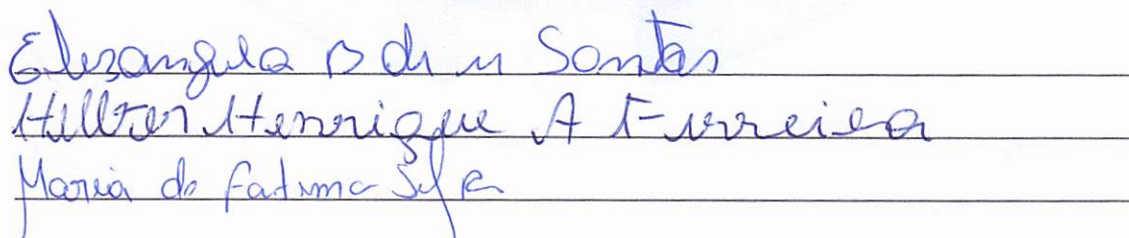 Elezangela B de M Santos
Helton Henrique A Ferreira
Maria de Fatima Silva